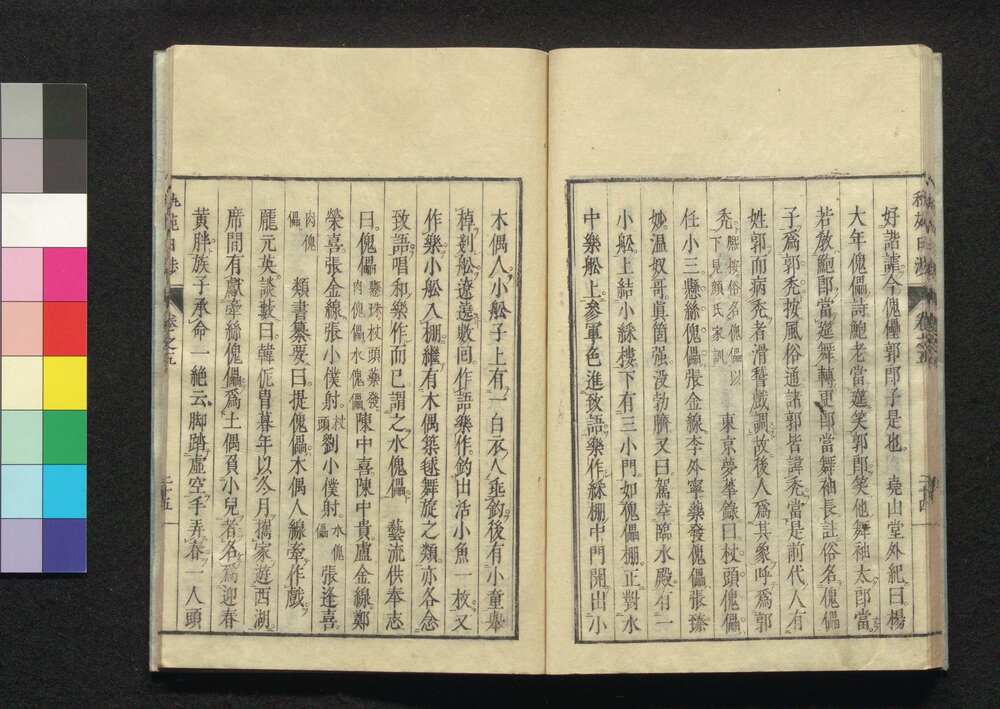 好諧謔今傀儡郭郎子是也　堯山堂外紀曰楊
大年傀儡詩鮑老當筵笑郭郎笑他舞袖太郎當
若敎鮑郎當筵舞轉更郎當舞袖長註俗名傀儡
子爲郭禿按風俗通諸郭皆諱禿當是前代人有
姓郭而病禿者滑稽戲調故後人爲其象呼爲郭
禿 按俗名傀儡以下見顔氏家訓　東京夢華錄曰杖頭傀儡
任小三懸絲傀儡張金線李外寧藥發傀儡張臻
妙溫奴哥眞箇强沒勃臍又曰駕幸臨水殿有一
小船上結小綵樓下有三小門如傀儡棚正對水
中樂船上參軍色進致語樂作綵棚中門開出小
木偶人小船子上有一白衣人垂釣後有小童擧
棹剗船遼遶數回作語樂作釣出活小魚一枚又
作樂小船入棚繼有木偶築毬舞旋之類亦各念
致語唱和樂作而已謂之水傀儡　藝流供奉志
曰傀儡 懸絲杖頭藥發肉傀儡水傀儡 陳中喜陳中貴盧金線鄭
榮喜張金線張小僕射 杖頭 劉小僕射 水傀儡 張逢喜
肉傀儡　類書纂要曰提傀儡木偶人線牽作戲
龐元英談藪曰韓侂冑暮年以冬月攜家遊西湖
席間有獻牽絲傀儡爲土偶負小兒者名爲迎春
黃胖族子承命一絶云脚踏虛空手弄春一人頭
卷之五
二十五